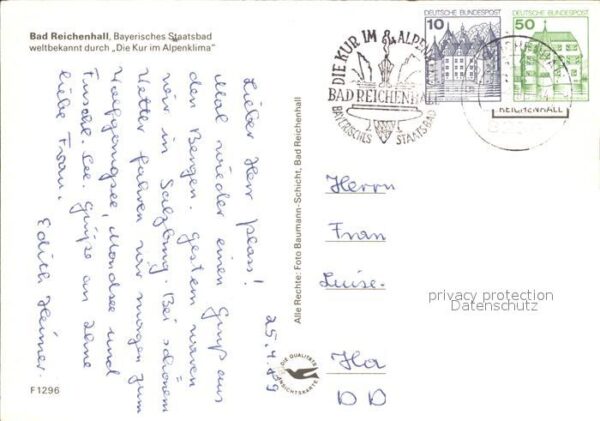 Bad Reichenhall, Bayerisches Staatsbad
weltbekannt durch „Die Kur im Alpenklima"
DIE KUR IM ALPEN
BAD REICHENHALL
BAYERISCHES STAATSBAD
DEUTSCHE BUNDESPOST
10
DEUTSCHE BUNDESPOST
50
REICHENHALL
25.4.89
Lieber Herr Plass!
Mal wieder einen Gruß aus
den Bergen. Gestern waren
wir in Salzburg. Bei schönem
Wetter fahren wir morgen zum
Wolfgangsee, Mondsee und
Fuschl See. Grüße an Ihre
liebe Frau.
Edith Heimer
Alle Rechte: Foto Baumann-Schicht, Bad Reichenhall
Herrn
Fran
Luise-
Ha
DD
privacy protection
Datenschutz
DIE QUALITÄTS
ANSICHTSKARTE
F 1296